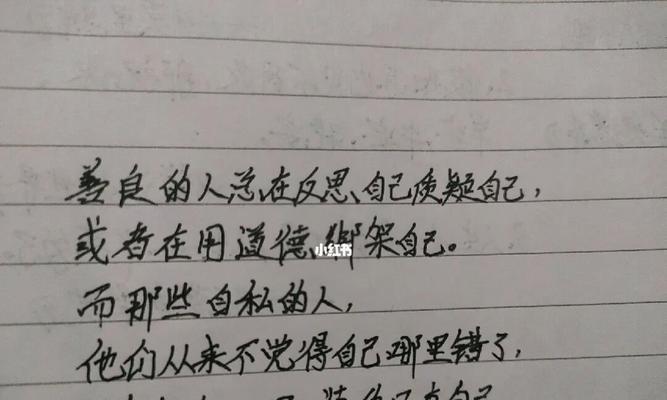 善良的人总在反思自己质疑自己，
或者在用道德绑架自己。
小红书
而那些自私的人，
他们从来不觉得自己哪里错了，